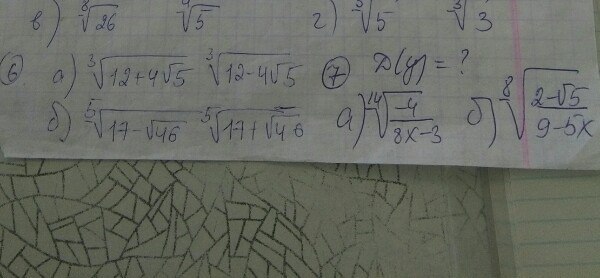 в) ⁸√26 ⁴√5 г) ³√5 ³√3
⑥ а) ³√(12+4√5) ³√(12-4√5) ⑦ D(y) = ?
б) ⁵√(17-√46) ⁵√(17+√46) а) ¹⁴√(-4/(8x-3)) б) ⁸√((2-√5)/(9-5x))